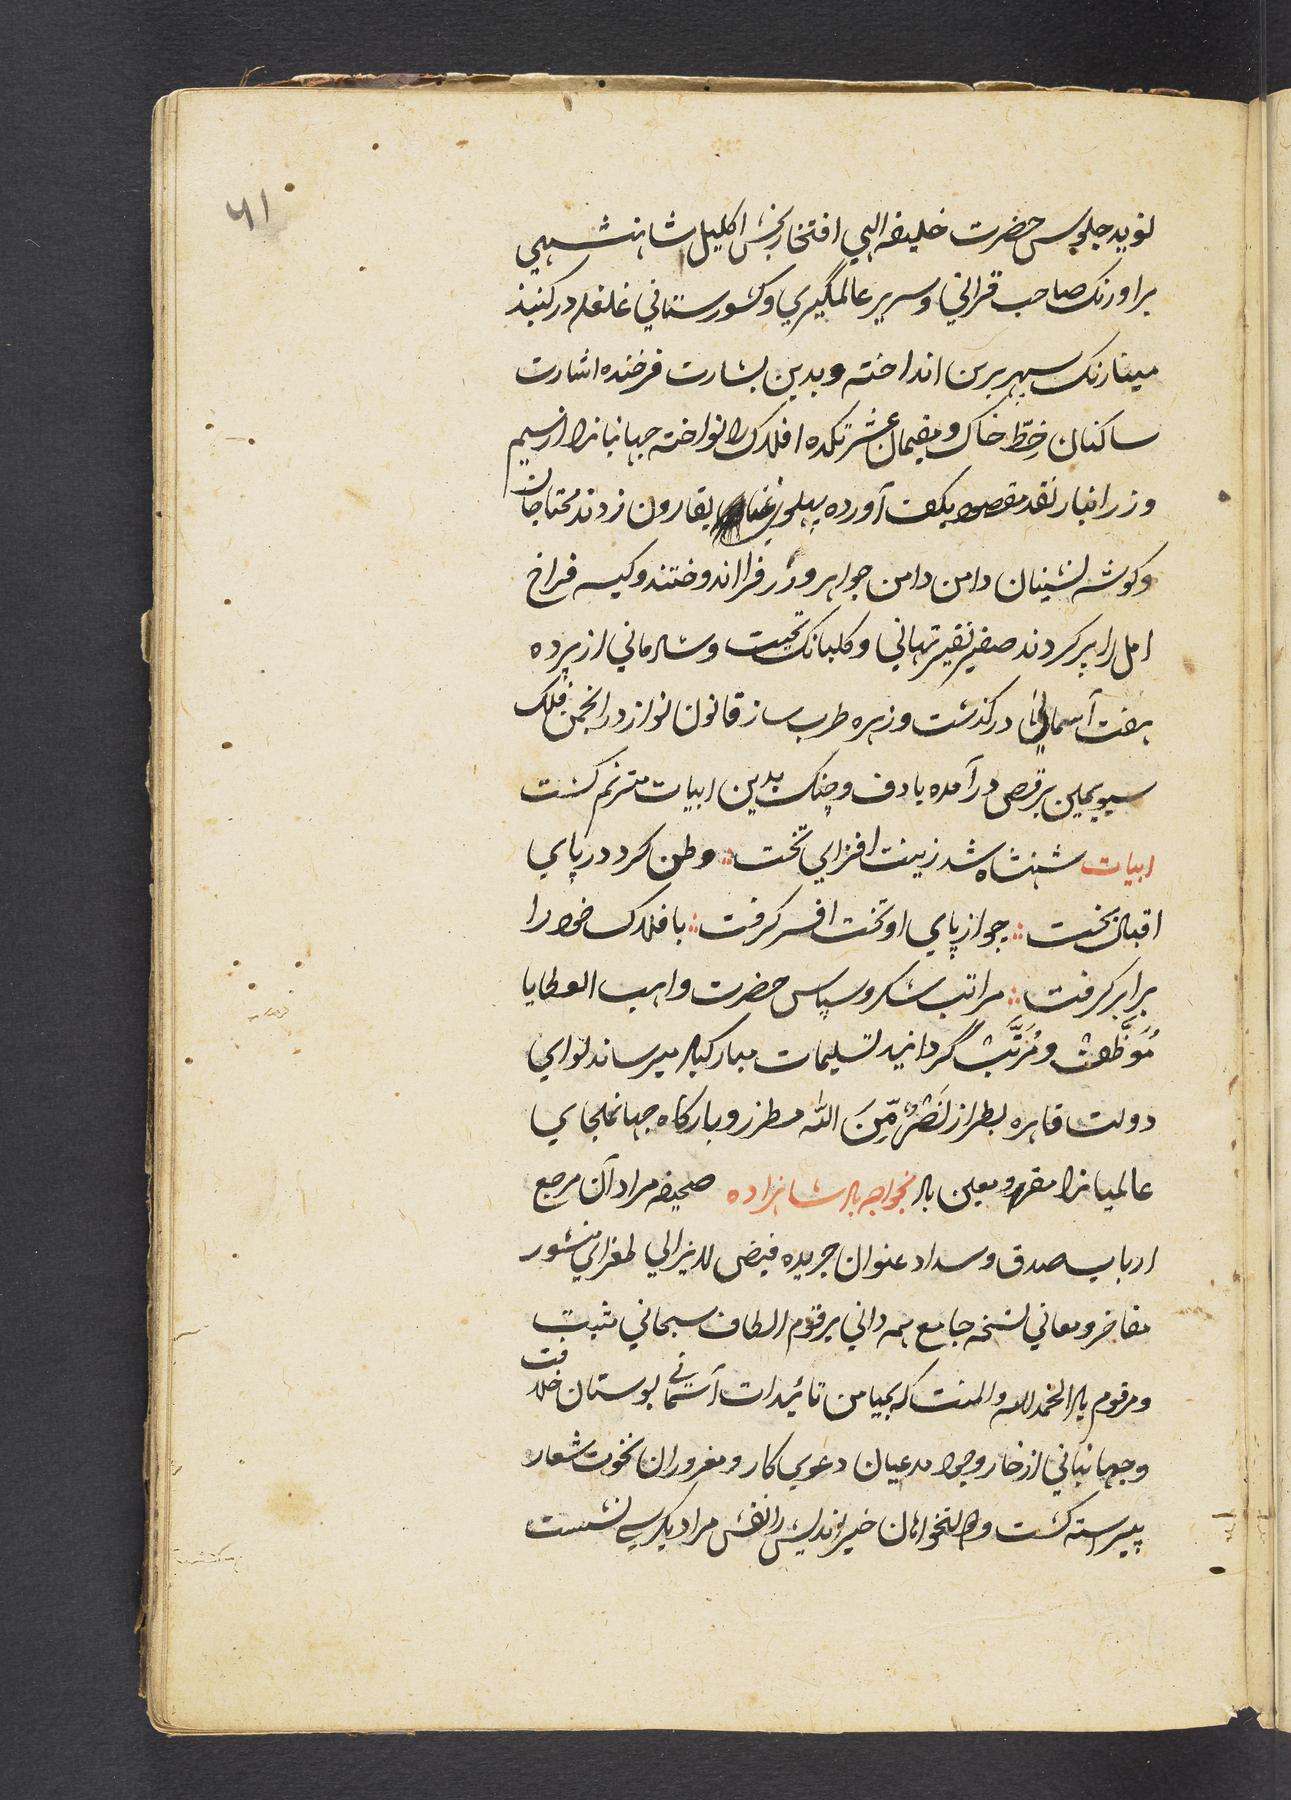 ۴۱
نوید جلوس حضرت خلیفه الهی افتخار بخش اکلیل شاهنشهی
بر اورنک صاحب قرانی و سریر عالمگیری و کشورستانی غلغله در کنبذ
مینارنک سپهر برین انداخته و بدین بشارت فرخنده اشارت
ساکنان خِطّ خاک و مقیمان عشرتکده افلاک را نواخته جهانیانرا از سیم
و زر انبار نقد مقصود بکف آورده پهلوی غنا بقارون زدند محتاجان
و کوشه نشینان دامن دامن جواهر و زر فرا اندوختند و کیسه فراخ
امل را پر کردند صفیر نفیر تهانی و کلبانک تحیت و شادمانی از پرده
هفت آسمان در کذشت و زهره طرب ساز قانون نواز در انجمن فلک
سیویمین برقص درآمده با دف و چنک بدین ابیات مترنم کشت
ابیات شهنشاه شد زینت افزای تخت وطن کرد در پای
اقبال بخت چو از پای او تخت افسر کرفت با فلاک خود را
برابر کرفت مراتب شکر و سپاس حضرت واهب العطایا
مُوَظَّف و مُرَتَّب گردانید تسلیمات مبارکباد میرساند لوای
دولت قاهره بطراز نَصْرٌ مِّنَ الله مطرز و بارکاه جهانملجای
عالمیانرا مقر و معین باد بخواجه باد شاهزاده صحیفه مراد آن مرجع
ارباب صدق و سداد عنوان جریده فیض لایزالی طغرای منشور
مفاخر و معانی نسخه جامع همه دانی برقوم الطاف سبحانی مثبت
و مرقوم باد الحمد لله والمنت که بمیامن تائیدات آسمانی بوستان خلافت
و جهانبانی از خار وجود مدعیان دعوی کار و مغروران نخوت شعار
پیراسته کشت و دولتخواهان خیر اندیش را نقش مراد بکرسی نشست